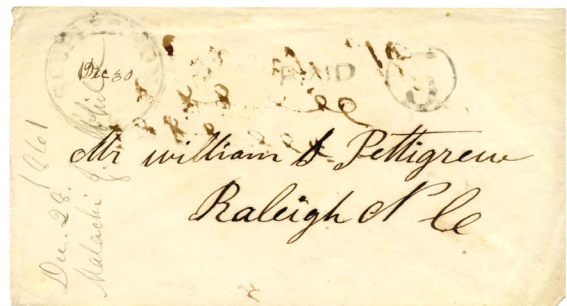 Dec 30
PAID
5
Mr William S Pettigrew
Raleigh N C
Dec. 28. 1861
Malachi J. White